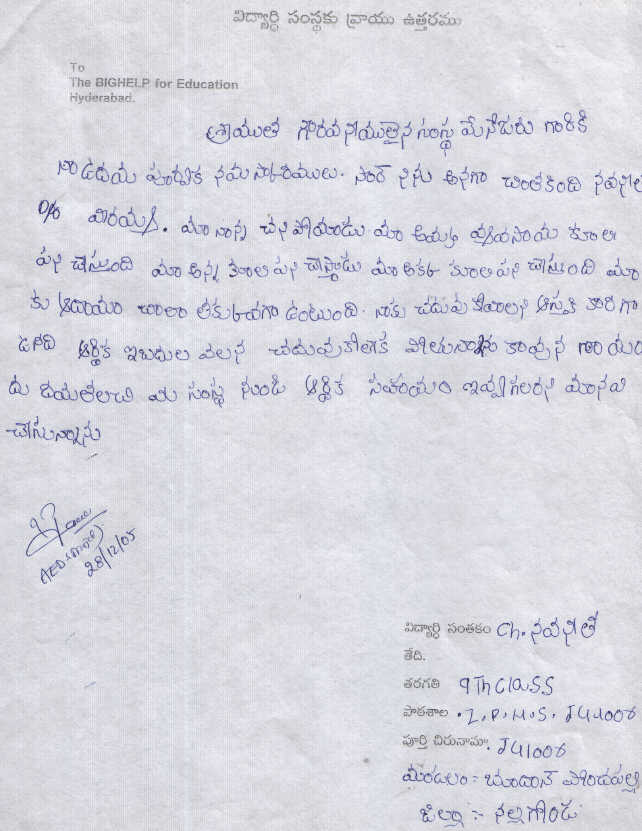 విద్యార్థి సంస్థకు వ్రాయు ఉత్తరము
To
The BIGHELP for Education
Hyderabad.
శ్రీయుత గౌరవనీయులైన సంస్థ మేనేజరు గారికి
నా ఉదయ పూర్వక నమస్కారములు. సార్ నేను అనగా చింతకింది నవనీత
D/o వీరయ్య. మా నాన్న చనిపోయాడు మా అమ్మ వ్యవసాయ కూలి
పని చేస్తుంది మా అన్న కూలి పని చేస్తాడు మా అక్క కూలి పని చేస్తుంది మా
కు ఆదాయం చాలా తక్కువగా ఉంటుంది. నాకు చదువుకోవాలని ఆసక్తి కారిగా
ఉన్నది ఆర్థిక ఇబదుల వలన చదువుకోలేక పోతున్నాను కావున
దు దయతలచి మీ సంస్థ నుండి ఆర్థిక సహాయం ఇవ్వగలరని మానవి
చేస్తున్నాను
28/12/05
విద్యార్థి సంతకం Ch. నవనీత
తేది.
తరగతి 9Th Class
పాఠశాల . Z.P.H.S.
పూర్తి చిరునామా.
మండలం :- భూదాన్ పోచంపల్లి
జిల్లా :- నల్లగొండ